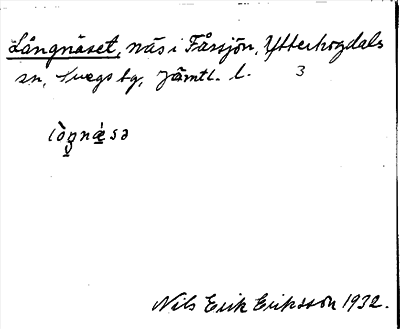 Långnäset, näs i Fåssjön, Ytterhogdals
sn, Svegs tg, Jämtl. l. 3
Nils Erik Eriksson 1932.